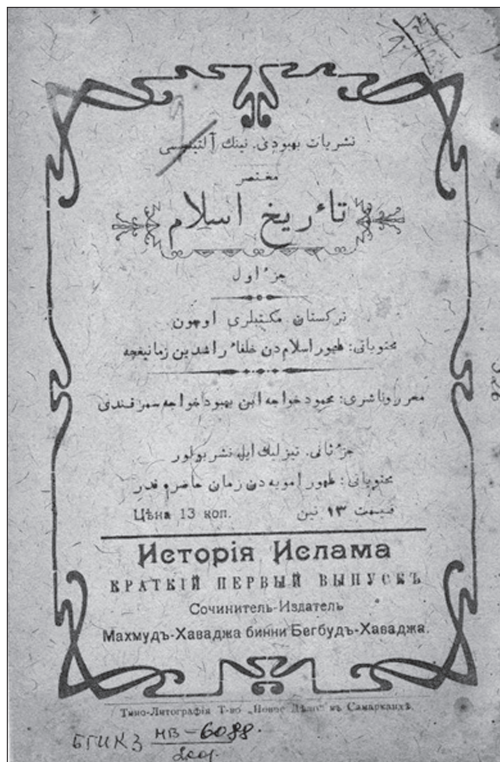 نشريات بهبودى. نينك آلتينچيسى
مختصر
تأريخ اسلام
جزء اول
تركستان مكتبلرى اوچون
محتوياتى: ظهور اسلام دن خلفاء راشدين زمانيغچه
محررو ناشرى: محمود خواجه ابن بهبود خواجه سمرقندى
جزء ثانى. تيزليك ايله نشر بولور
محتوياتى: ظهور امويه دن زمان حاضره قدر
Цѣна 13 коп. قيمت ١٣ تين
Исторія Ислама
КРАТКІЙ ПЕРВЫЙ ВЫПУСКЪ
Сочинитель-Издатель
Махмудъ-Хаваджа бинни Бегбудъ-Хаваджа.
Типо-Литографія Т-во „Новое Дѣло" въ Самаркандѣ.
НВ-6088